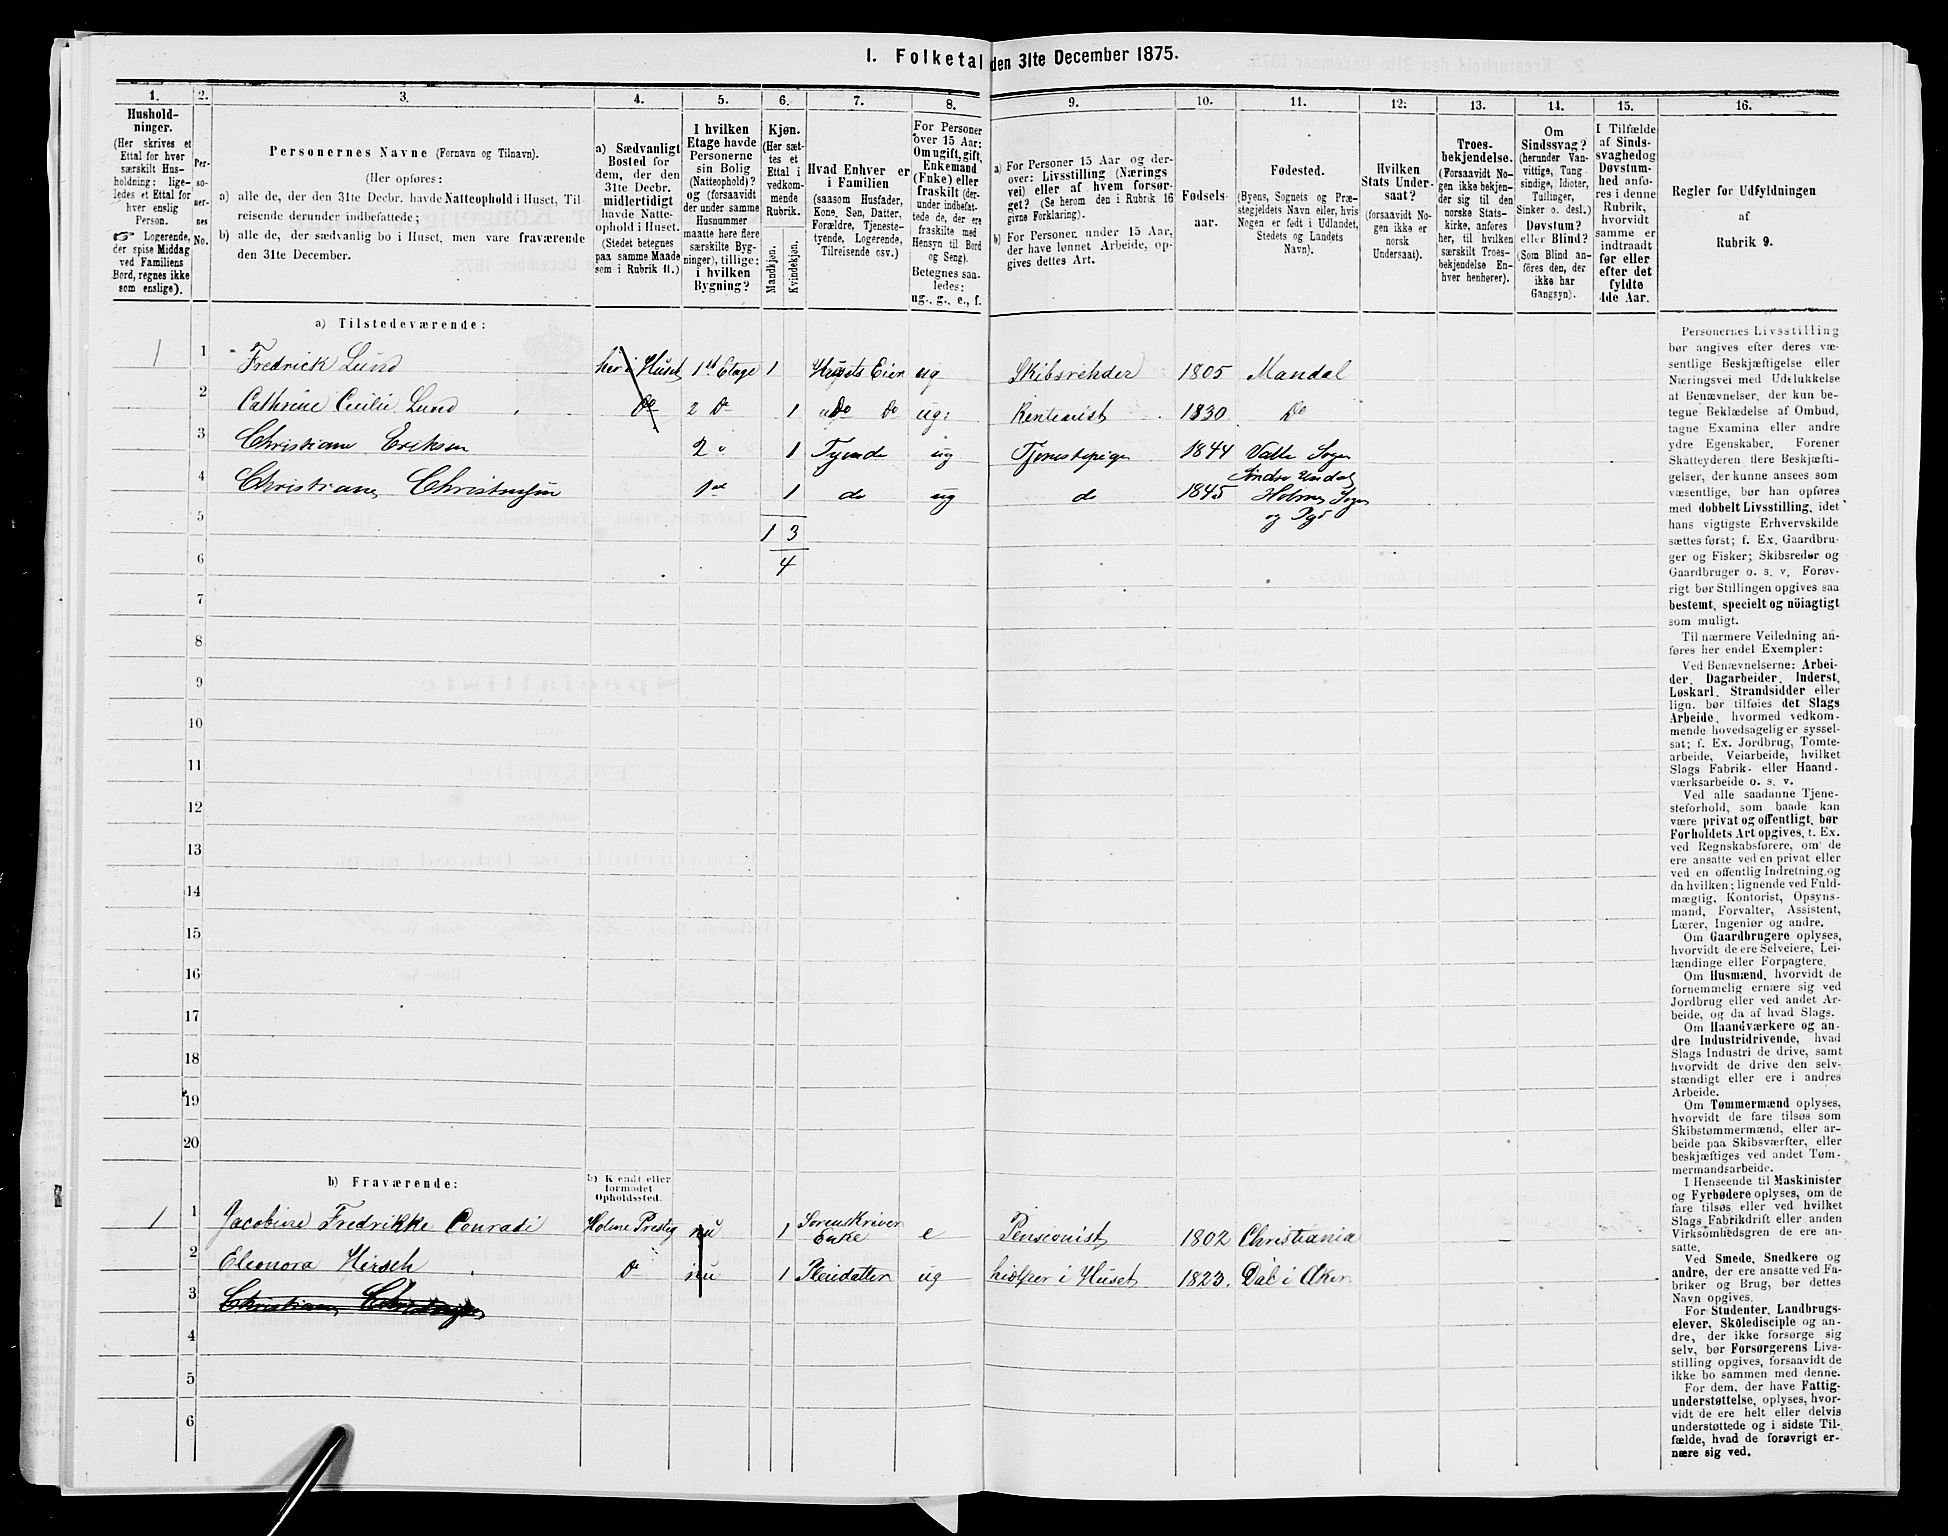 I. Folketal den 31te December 1875.
1. 2. 3. 4. 5. 6. 7. 8. 9. 10. 11. 12. 13. 14. 15. 16.
Hushold-
ninger.
(Her skrives et
Ettal for hver
særskilt Hus-
holdning; lige-
ledes et Ettal for
hver enslig
Person.
☞ Logerende,
der spise Middag
ved Familiens
Bord, regnes ikke
som enslige).
Per-
so-
ner-
nes
No.
Personernes Navne (Fornavn og Tilnavn).
(Her opføres:
a) alle de, der den 31te Decbr. havde Natteophold i Huset, Til-
reisende derunder indbefattede;
b) alle de, der sædvanlig bo i Huset, men vare fraværende
den 31te December.
a) Sædvanligt
Bosted for
dem, der den
31te Decbr.
midlertidigt
havde Natte-
ophold i Huset.
(Stedet betegnes
paa samme Maade
som i Rubrik 11.)
I hvilken
Etage havde
Personerne
sin Bolig
(Natteophold)?
og (forsaavidt
der under samme
Husnummer
maatte høre flere
særskilte Byg-
ninger), tillige:
i hvilken
Bygning?
Kjøn.
(Her sæt-
tes et
Ettal i
vedkom-
mende
Rubrik.
Mandkjøn.
Kvindekjøn.
Hvad Enhver er
i Familien
(saasom Husfader,
Kone, Søn, Datter,
Forældre, Tjeneste-
tyende, Logerende,
Tilreisende osv.)
For Personer
over 15 Aar:
Om ugift, gift,
Enkemand
(Enke) eller
fraskilt (der-
under indbefat-
tede de, der ere
fraskilte med
Hensyn til Bord
og Seng).
Betegnes saa-
ledes:
ug., g., e., f.
a) For Personer 15 Aar og der-
over: Livsstilling (Nærings
vei) eller af hvem forsør-
get? (Se herom den i Rubrik 16
givne Forklaring).
b) For Personer under 15 Aar,
der have lønnet Arbeide, op-
gives dettes Art.
Fødsels-
aar.
Fødested.
(Byens, Sognets og Præ-
stegjeldets Navn eller, hvis
Nogen er født i Udlandet,
Stedets og Landets
Navn).
Hvilken
Stats Under-
saat?
(forsaavidt No-
gen ikke er
norsk
Undersaat).
Troes-
bekjendelse.
(Forsaavidt No-
gen ikke bekjen-
der sig til den
norske Stats-
kirke, anføres
her, til hvilken
særskilt Troes-
bekjendelse En-
hver henhører).
Om
Sindssvag?
(herunder Van-
vittige, Tung-
sindige, Idioter,
Tullinger,
Sinker o. desl.)
Døvstum?
eller Blind?
(Som Blind an-
føres den, der
ikke har
Gangsyn).
I Tilfælde
af Sinds-
svaghed og
Døvstum-
hed anfø-
res i denne
Rubrik,
hvorvidt
samme er
indtraadt
før eller
efter det
fyldte
4de Aar.
Regler for Udfyldningen
af
Rubrik 9.
a) Tilstedeværende:
1 1 Fredrick Lund her i Huset 1st Etage 1 Husets Eier ug Skibsrehder 1805 Mandal
2 Cathrine Cecilie Lund Do 2 Do 1 Do Do ug: Rentenist 1830 Do
3 Christiane Eriksen 2 " 1 Tyende ug Tjenestepige 1844 Valle Sogn
Søndre Undal
4 Christiane Christensen 1st 1 do ug do 1845 Holme Sogn
og Pgd
5 1 3
6 4
7
8
9
10
11
12
13
14
15
16
17
18
19
20
b) Fraværende:
b) Kjendt eller
formodet
Opholdssted.
1 1 Jacobine Fredrikke Conradi Holme Prestg nu 1 Sorenskriver
Enke e Pensionist 1802 Christiania
2 Eleonora Hirsch Do nu 1 Pleiedatter ug hielper i Huset 1823. Dal i Aker
3 Christiane Christensen
4
5
6
Personernes Livsstilling
bør angives efter deres væ-
sentlige Beskjæftigelse eller
Næringsvei med Udelukkelse
af Benævnelser, der kun be-
tegne Beklædelse af Ombud,
tagne Examina eller andre
ydre Egenskaber. Forener
Skatteyderen flere Beskjæfti-
gelser, der kunne ansees som
væsentlige, bør han opføres
med dobbelt Livsstilling, idet
hans vigtigste Erhvervskilde
sættes først; f. Ex. Gaardbru-
ger og Fisker; Skibsreder og
Gaardbruger o. s. v. Forøv-
rigt bør Stillingen opgives saa
bestemt, specielt og nöiagtigt
som muligt.
Til nærmere Veiledning an-
føres her endel Exempler:
Ved Benævnelserne: Arbei-
der, Dagarbeider, Inderst,
Løskarl, Strandsidder eller
lign. bør tilføies det Slags
Arbeide, hvormed vedkom-
mende hovedsagelig er syssel-
sat; f. Ex. Jordbrug, Tomte-
arbeide, Veiarbeide, hvilket
Slags Fabrik- eller Haand-
værksarbeide o. s. v.
Ved alle saadanne Tjene-
steforhold, som baade kan
være privat og offentligt, bør
Forholdets Art opgives, t. Ex.
ved Regnskabsførere, om de
ere ansatte ved en privat eller
ved en offentlig Indretning og
da hvilken; lignende ved Fuld-
mægtig, Kontorist, Opsyns-
mand, Forvalter, Assistent,
Lærer, Ingeniør og andre.
Om Gaardbrugere oplyses,
hvorvidt de ere Selveiere, Lei-
lændinge eller Forpagtere.
Om Husmænd, hvorvidt de
fornemmelig ernære sig ved
Jordbrug eller ved andet Ar-
beide, og da af hvad Slags.
Om Haandværkere og an-
dre Industridrivende, hvad
Slags Industri de drive, samt
hvorvidt de drive den selv-
stændigt eller ere i andres
Arbeide.
Om Tømmermænd oplyses,
hvorvidt de fare tilsøs som
Skibstømmermænd, eller ar-
beide paa Skibsværfter, eller
beskjæftiges ved andet Tøm-
mermandsarbeide.
I Henseende til Maskinister
og Fyrbødere oplyses, om de
fare tilsøs, eller ved hvilket
Slags Fabrikdrift eller anden
Virksomhedsgren de ere an-
satte.
Ved Smede, Snedkere og
andre, der ere ansatte ved Fa-
briker og Brug, bør dettes
Navn opgives.
For Studenter, Landbrugs-
elever, Skoledisciple og an-
dre, der ikke forsørge sig
selv, bør Forsørgerens Livs-
stilling opgives, forsaavidt de
ikke bo sammen med denne.
For dem, der have Fattig-
understøttelse, oplyses, hvor-
vidt de ere helt eller delvis
understøttede og i sidste Til-
fælde, hvad de forøvrigt er-
nære sig ved.